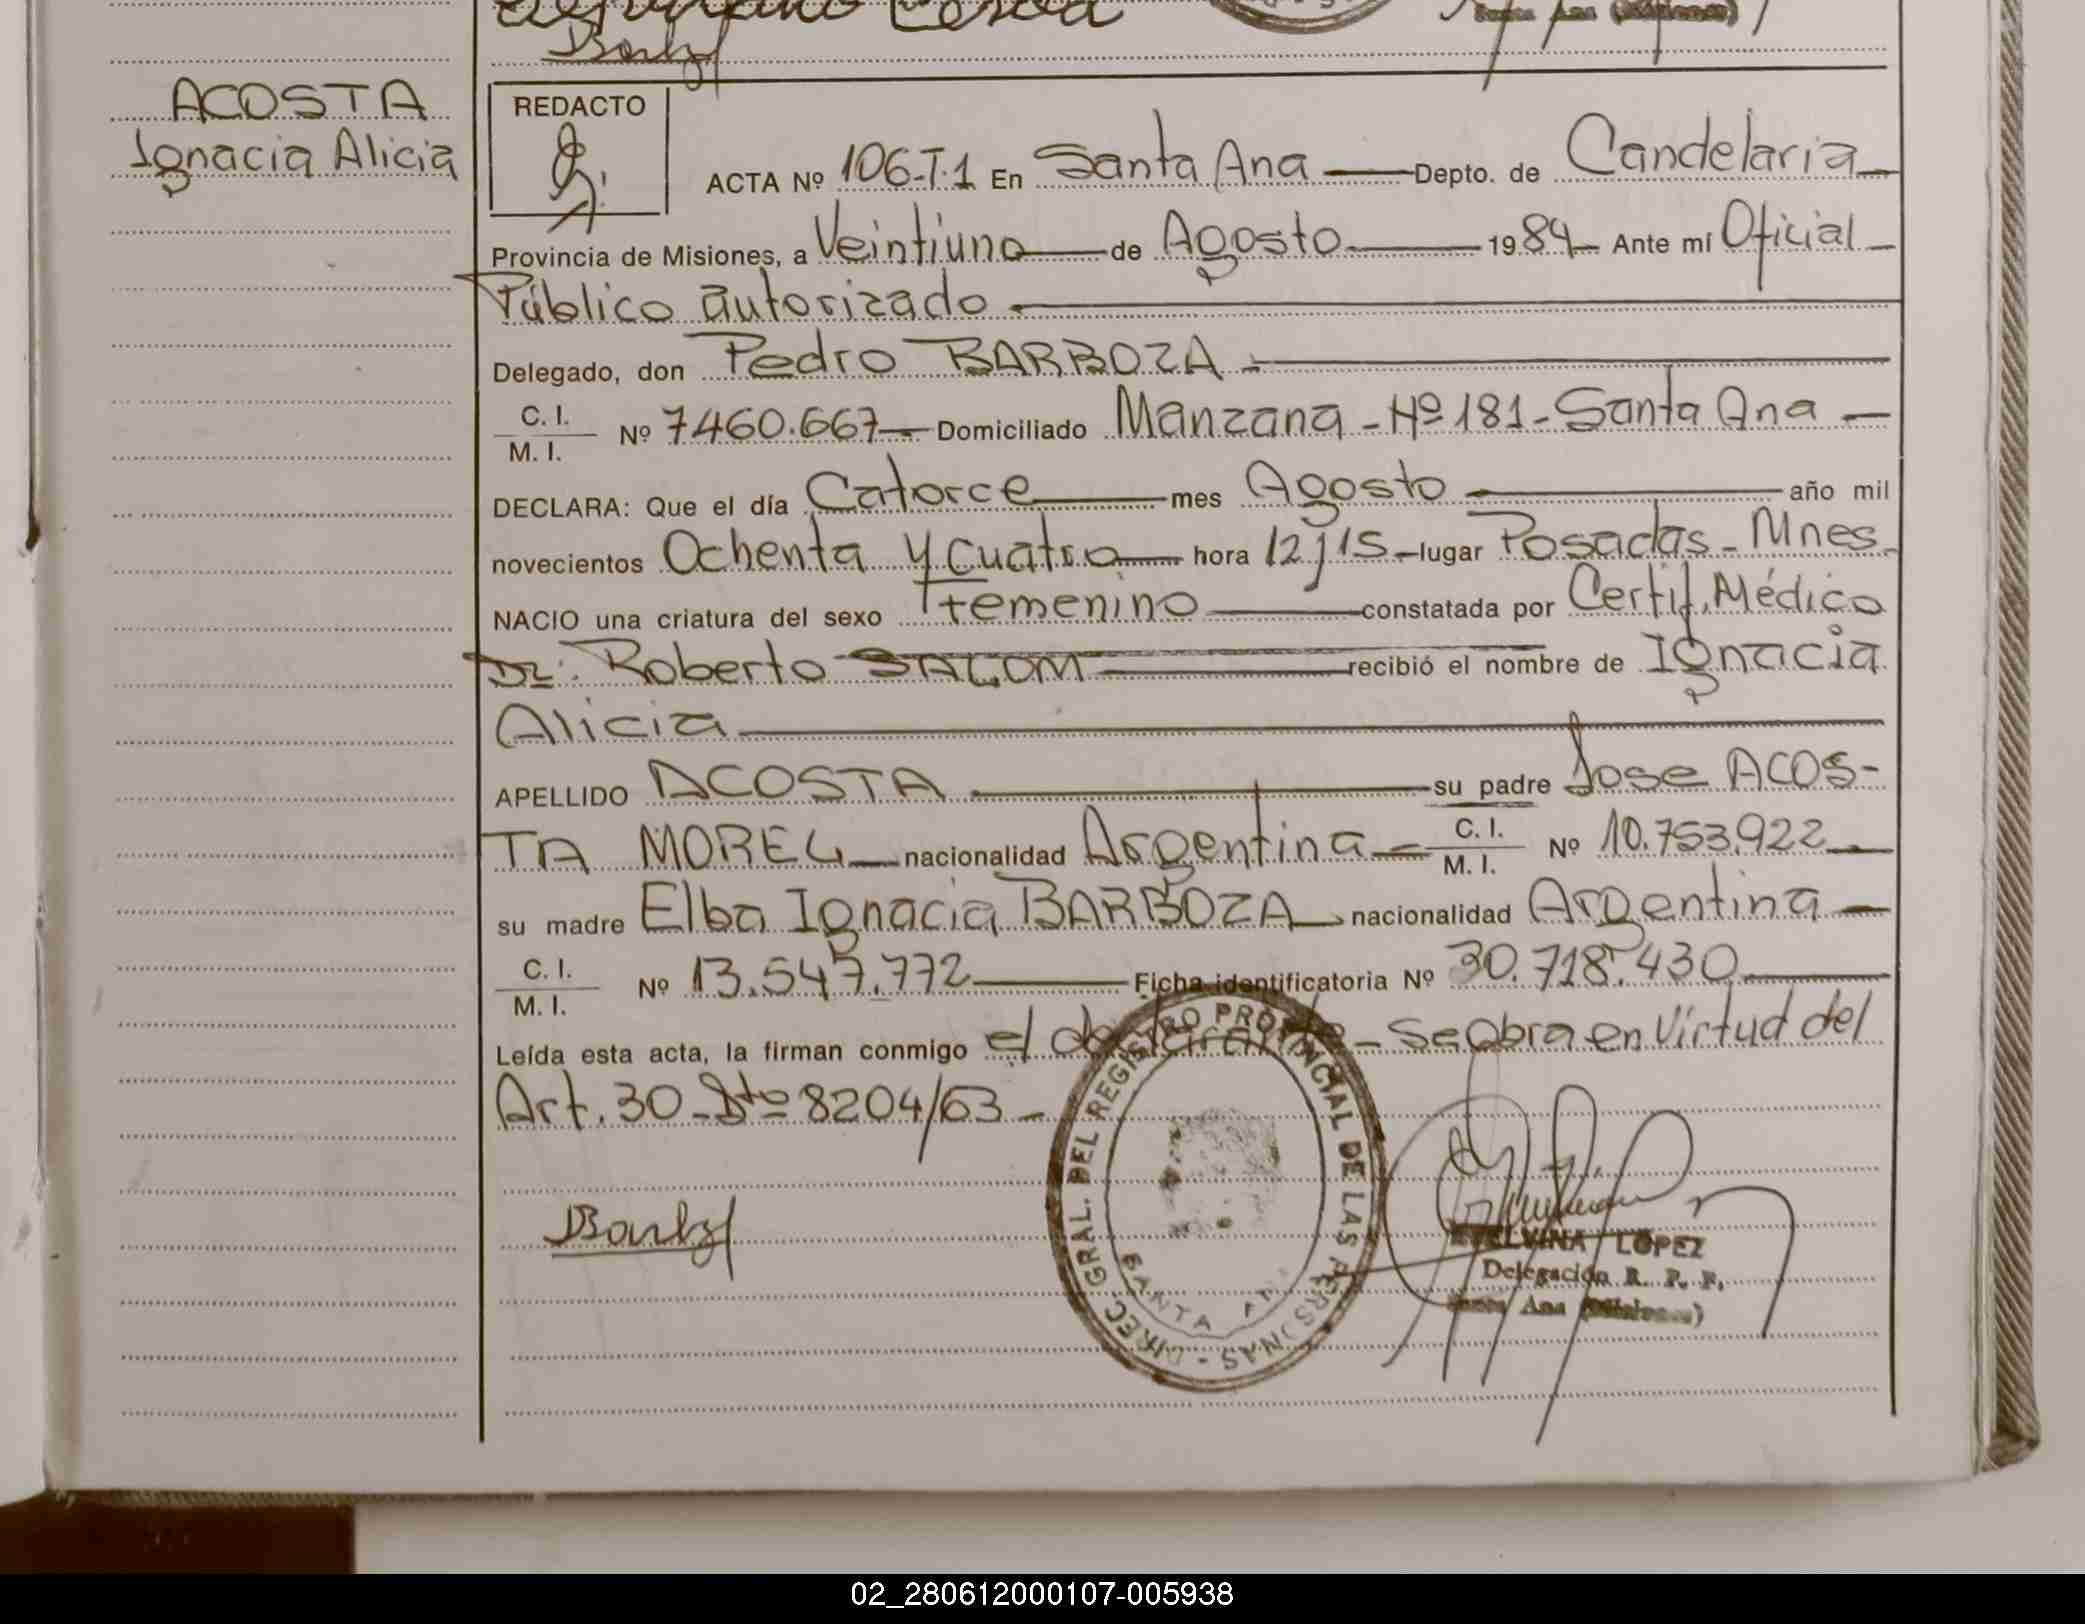 Santa Ana (Misiones)
ACOSTA
Ignacia Alicia
REDACTO
ACTA Nº 106-T.1 En Santa Ana — Depto. de Candelaria —
Provincia de Misiones, a Veintiuno — de Agosto — 1984 — Ante mí Oficial —
Público autorizado —
Delegado, don Pedro BARBOZA —
C. I. / M. I. Nº 7460.667 — Domiciliado Manzana - Nº 181 - Santa Ana —
DECLARA: Que el día Catorce — mes Agosto — año mil
novecientos Ochenta y Cuatro — hora 12,15 — lugar Posadas - Mnes.
NACIO una criatura del sexo Femenino — constatada por Certif. Médico
Dr. Roberto — recibió el nombre de Ignacia
Alicia —
APELLIDO ACOSTA — su padre Jose ACOS-
TA MOREL — nacionalidad Argentina — C. I. / M. I. Nº 10.753.922 —
su madre Elba Ignacia BARBOZA — nacionalidad Argentina —
C. I. / M. I. Nº 13.547.772 — Ficha identificatoria Nº 30.718.430 —
Leída esta acta, la firman conmigo el declarante - Se Obra en Virtud del
Art. 30 - Dto 8204/63 -
DIREC. GRAL. DEL REGISTRO PROVINCIAL DE LAS PERSONAS -
SANTA ANA
LOPEZ
Delegación R. P. P.
Santa Ana (Misiones)
02_280612000107-005938